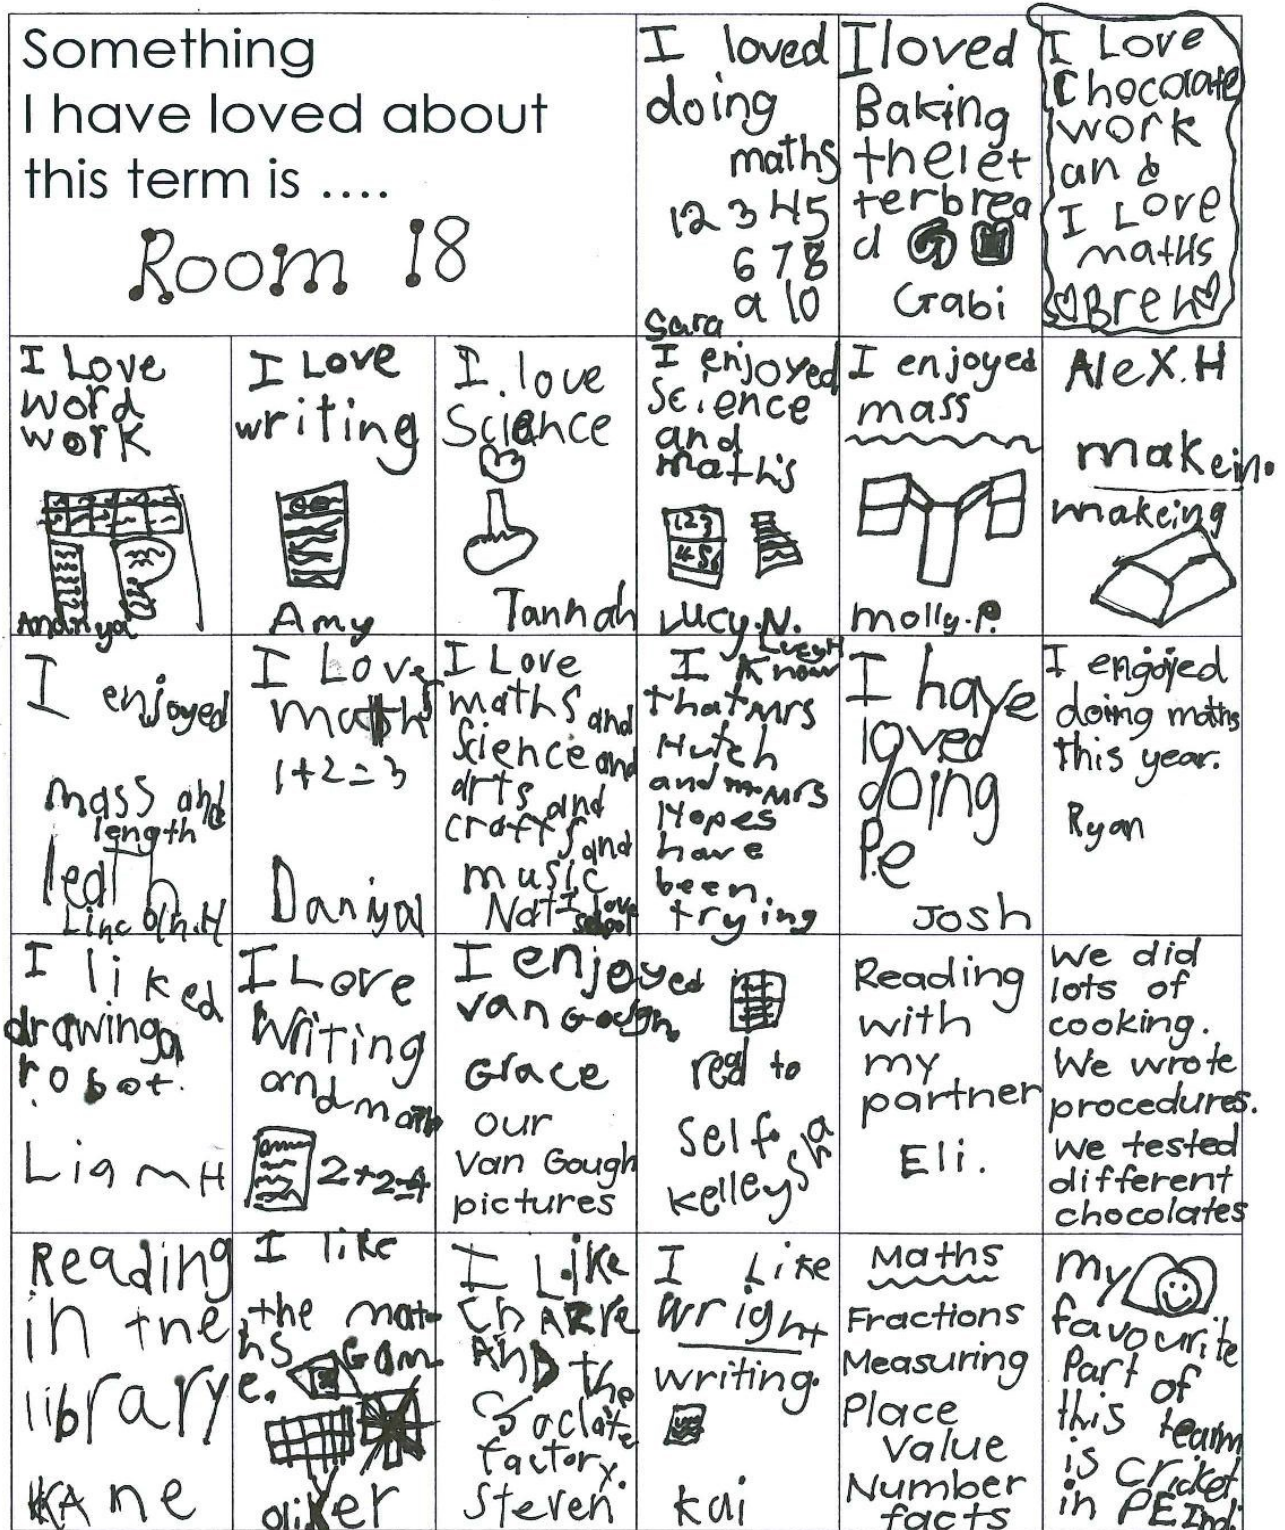 Something
I have loved about
this term is ....
Room 18
I loved
doing
maths
12 3 45
6 7 8
9 10
Sara
I loved
Baking
thelet
terbrea
d
Gabi
I Love
Chocolate
work
and
I Love
maths
Bren
I Love
word
work
Ananya
I Love
writing
Amy
I love
Science
Tannah
I enjoyed
Science
and
maths
123
456
Lucy.N.
I enjoyed
mass
molly.P.
Alex.H
makein.
makeing
I enjoyed
mass and
length
Lincoln.H
I Love
maths
1+2=3
Daniyal
I Love
maths and
Science and
arts and
crafts and
music
Nat I love
school
Lucy H
I know
that Mrs
Hutch
and Mrs
Hopes
have
been
trying
I have
loved
doing
P.e
Josh
I engojed
doing maths
this year.
Ryan
I liked
drawing a
robot.
Liam H
I Love
Writing
and math
2+2=4
I enjoyed
van Gough
Grace
our
Van Gough
pictures
red to
self
Kelleysha
Reading
with
my
partner
Eli.
We did
lots of
cooking.
We wrote
procedures.
We tested
different
chocolates
Reading
in the
library
Kane
I like
the mat-
hs Gam
e.
I Like
AND the
factory.
Steven
I Like
wright
writing.
Kai
Maths
Fractions
Measuring
Place
value
Number
facts
my
favourite
Part of
this tearm
is cricket
in PE